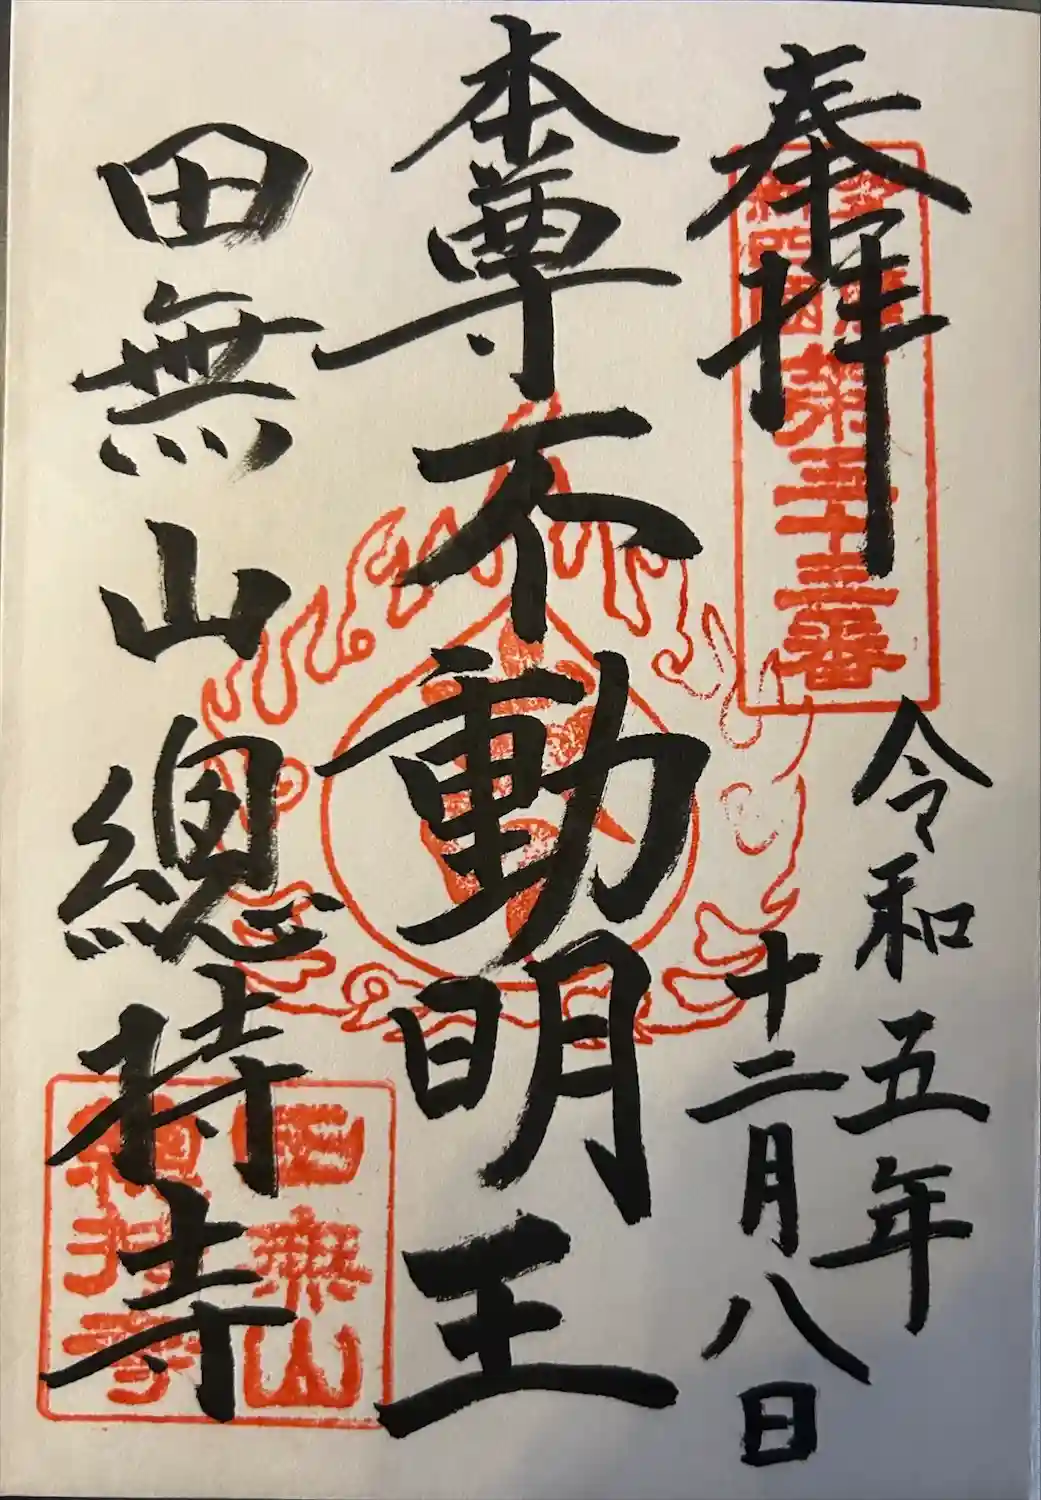 奉拝
多摩
新四国
第三十二番
令和五年
十二月八日
本尊不動明王
田無山總持寺
田無山
總持寺